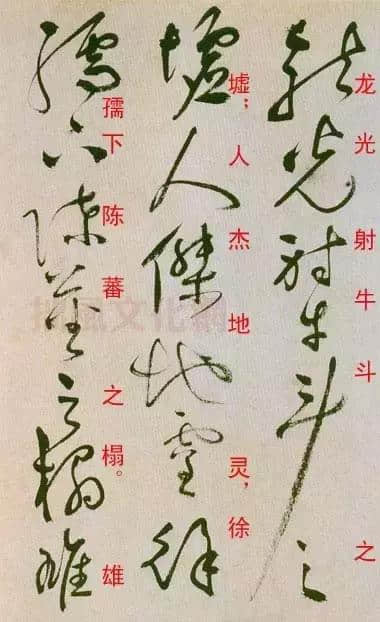 龙光射牛斗之
墟；人杰地灵，徐
孺下陈蕃之榻。雄
龍光射牛斗之
墟人傑地靈徐
孺下陳蕃之榻雄